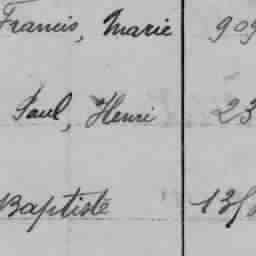 Francis, Marie 909
Paul, Henri 23
Baptiste 13/